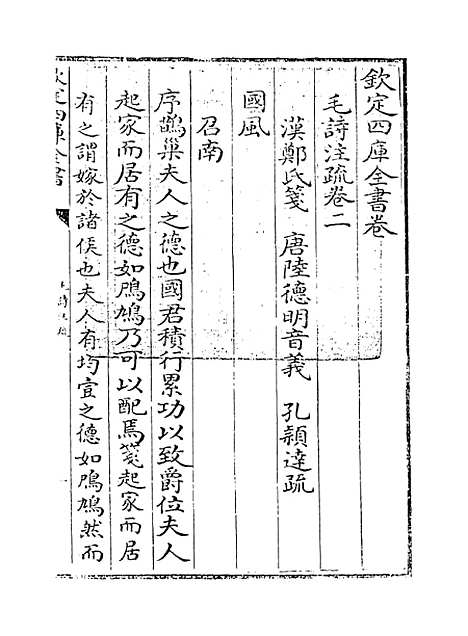 欽定四庫全書卷
毛詩注疏卷二
漢鄭氏箋 唐陸德明音義 孔穎達疏
國風
召南
序鵲巢夫人之德也國君積行累功以致爵位夫人
起家而居有之德如鳲鳩乃可以配焉箋起家而居
有之謂嫁於諸侯也夫人有均壹之德如鳲鳩然而
欽定四庫全書
毛詩注疏
一